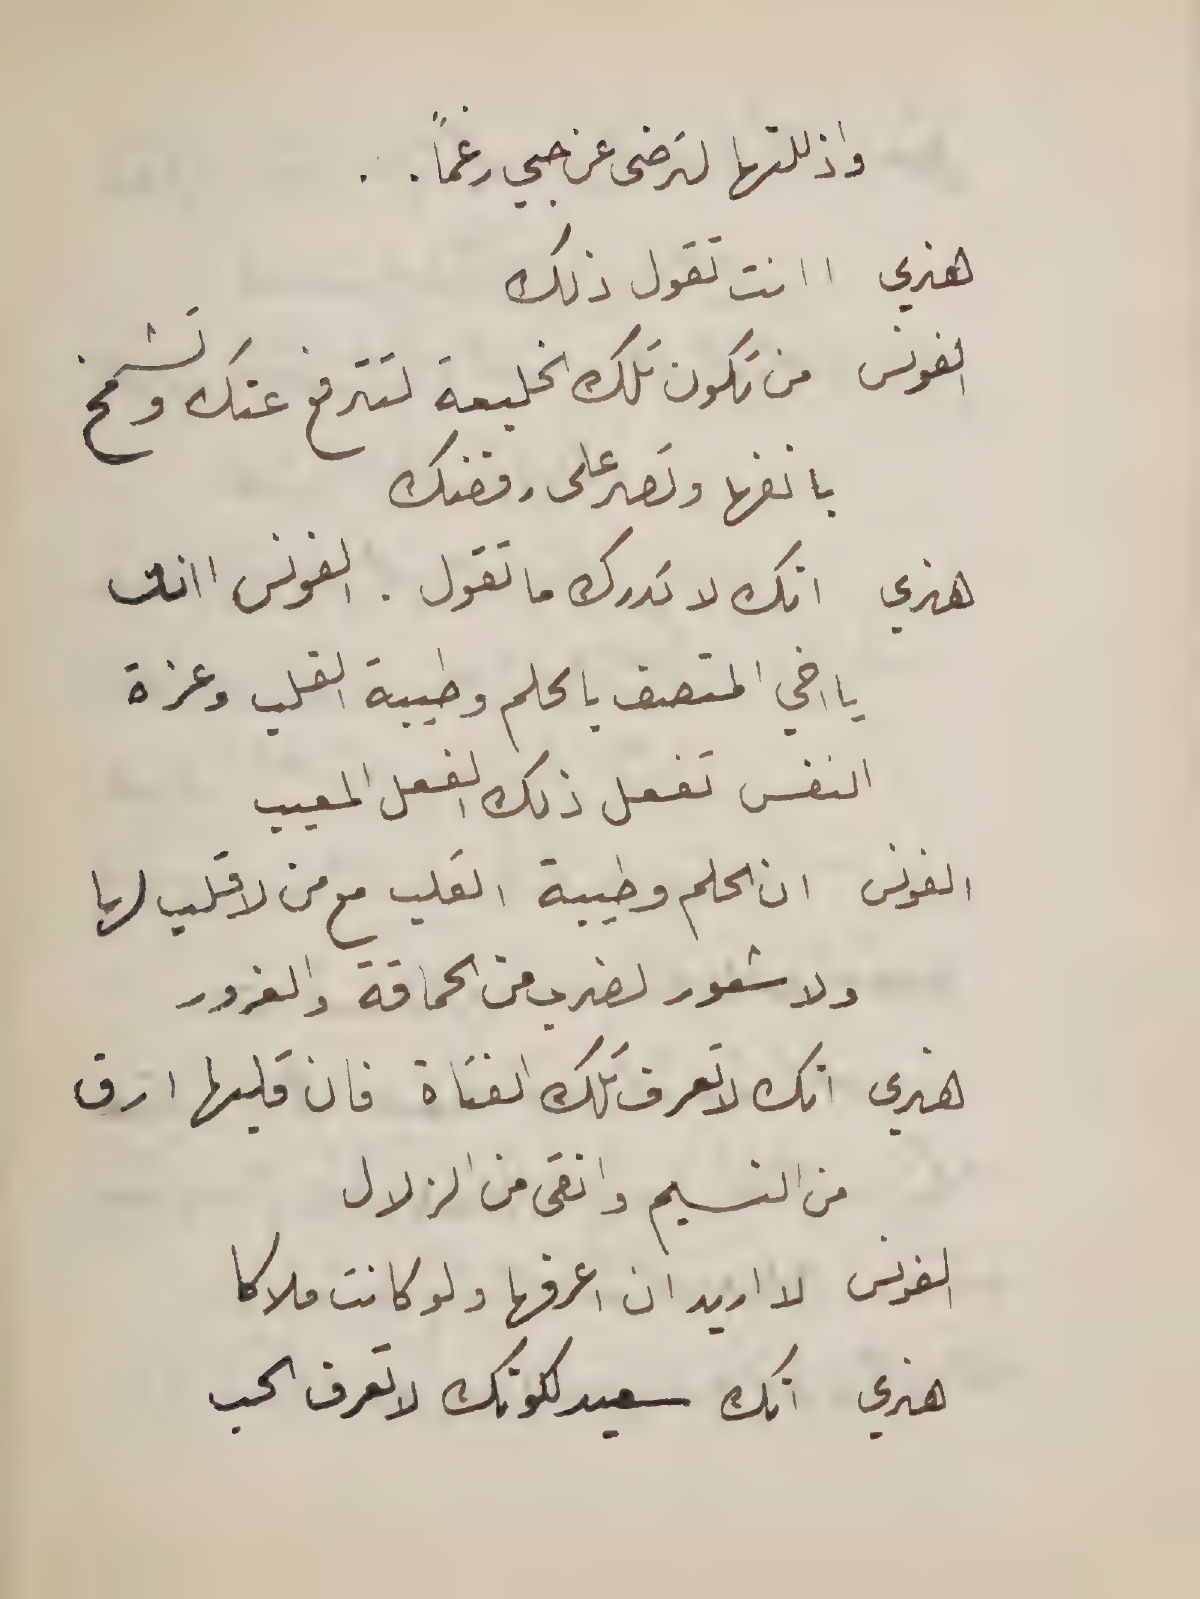 واذللتها لترضى عن حبي رغماً . .
هنري اانت تقول ذلك
الفونس من تكون تلك الخليعة لتترفع عنك وتشمخ
بانفها وتصر على رفضك
هنري انك لا تدرك ما تقول . الفونس اانت
يا اخي المتصف بالحلم وطيبة القلب وعزة
النفس تفعل ذلك الفعل المعيب
الفونس ان الحلم وطيبة القلب مع من لا قلب لها
ولا شعور لضرب من الحماقة والغرور
هنري انك لا تعرف تلك الفتاة فان قلبها ارق
من النسيم وانقى من الزلال
الفونس لا اريد ان اعرفها ولو كانت ملاكا
هنري انك سعيد لكونك لا تعرف الحب